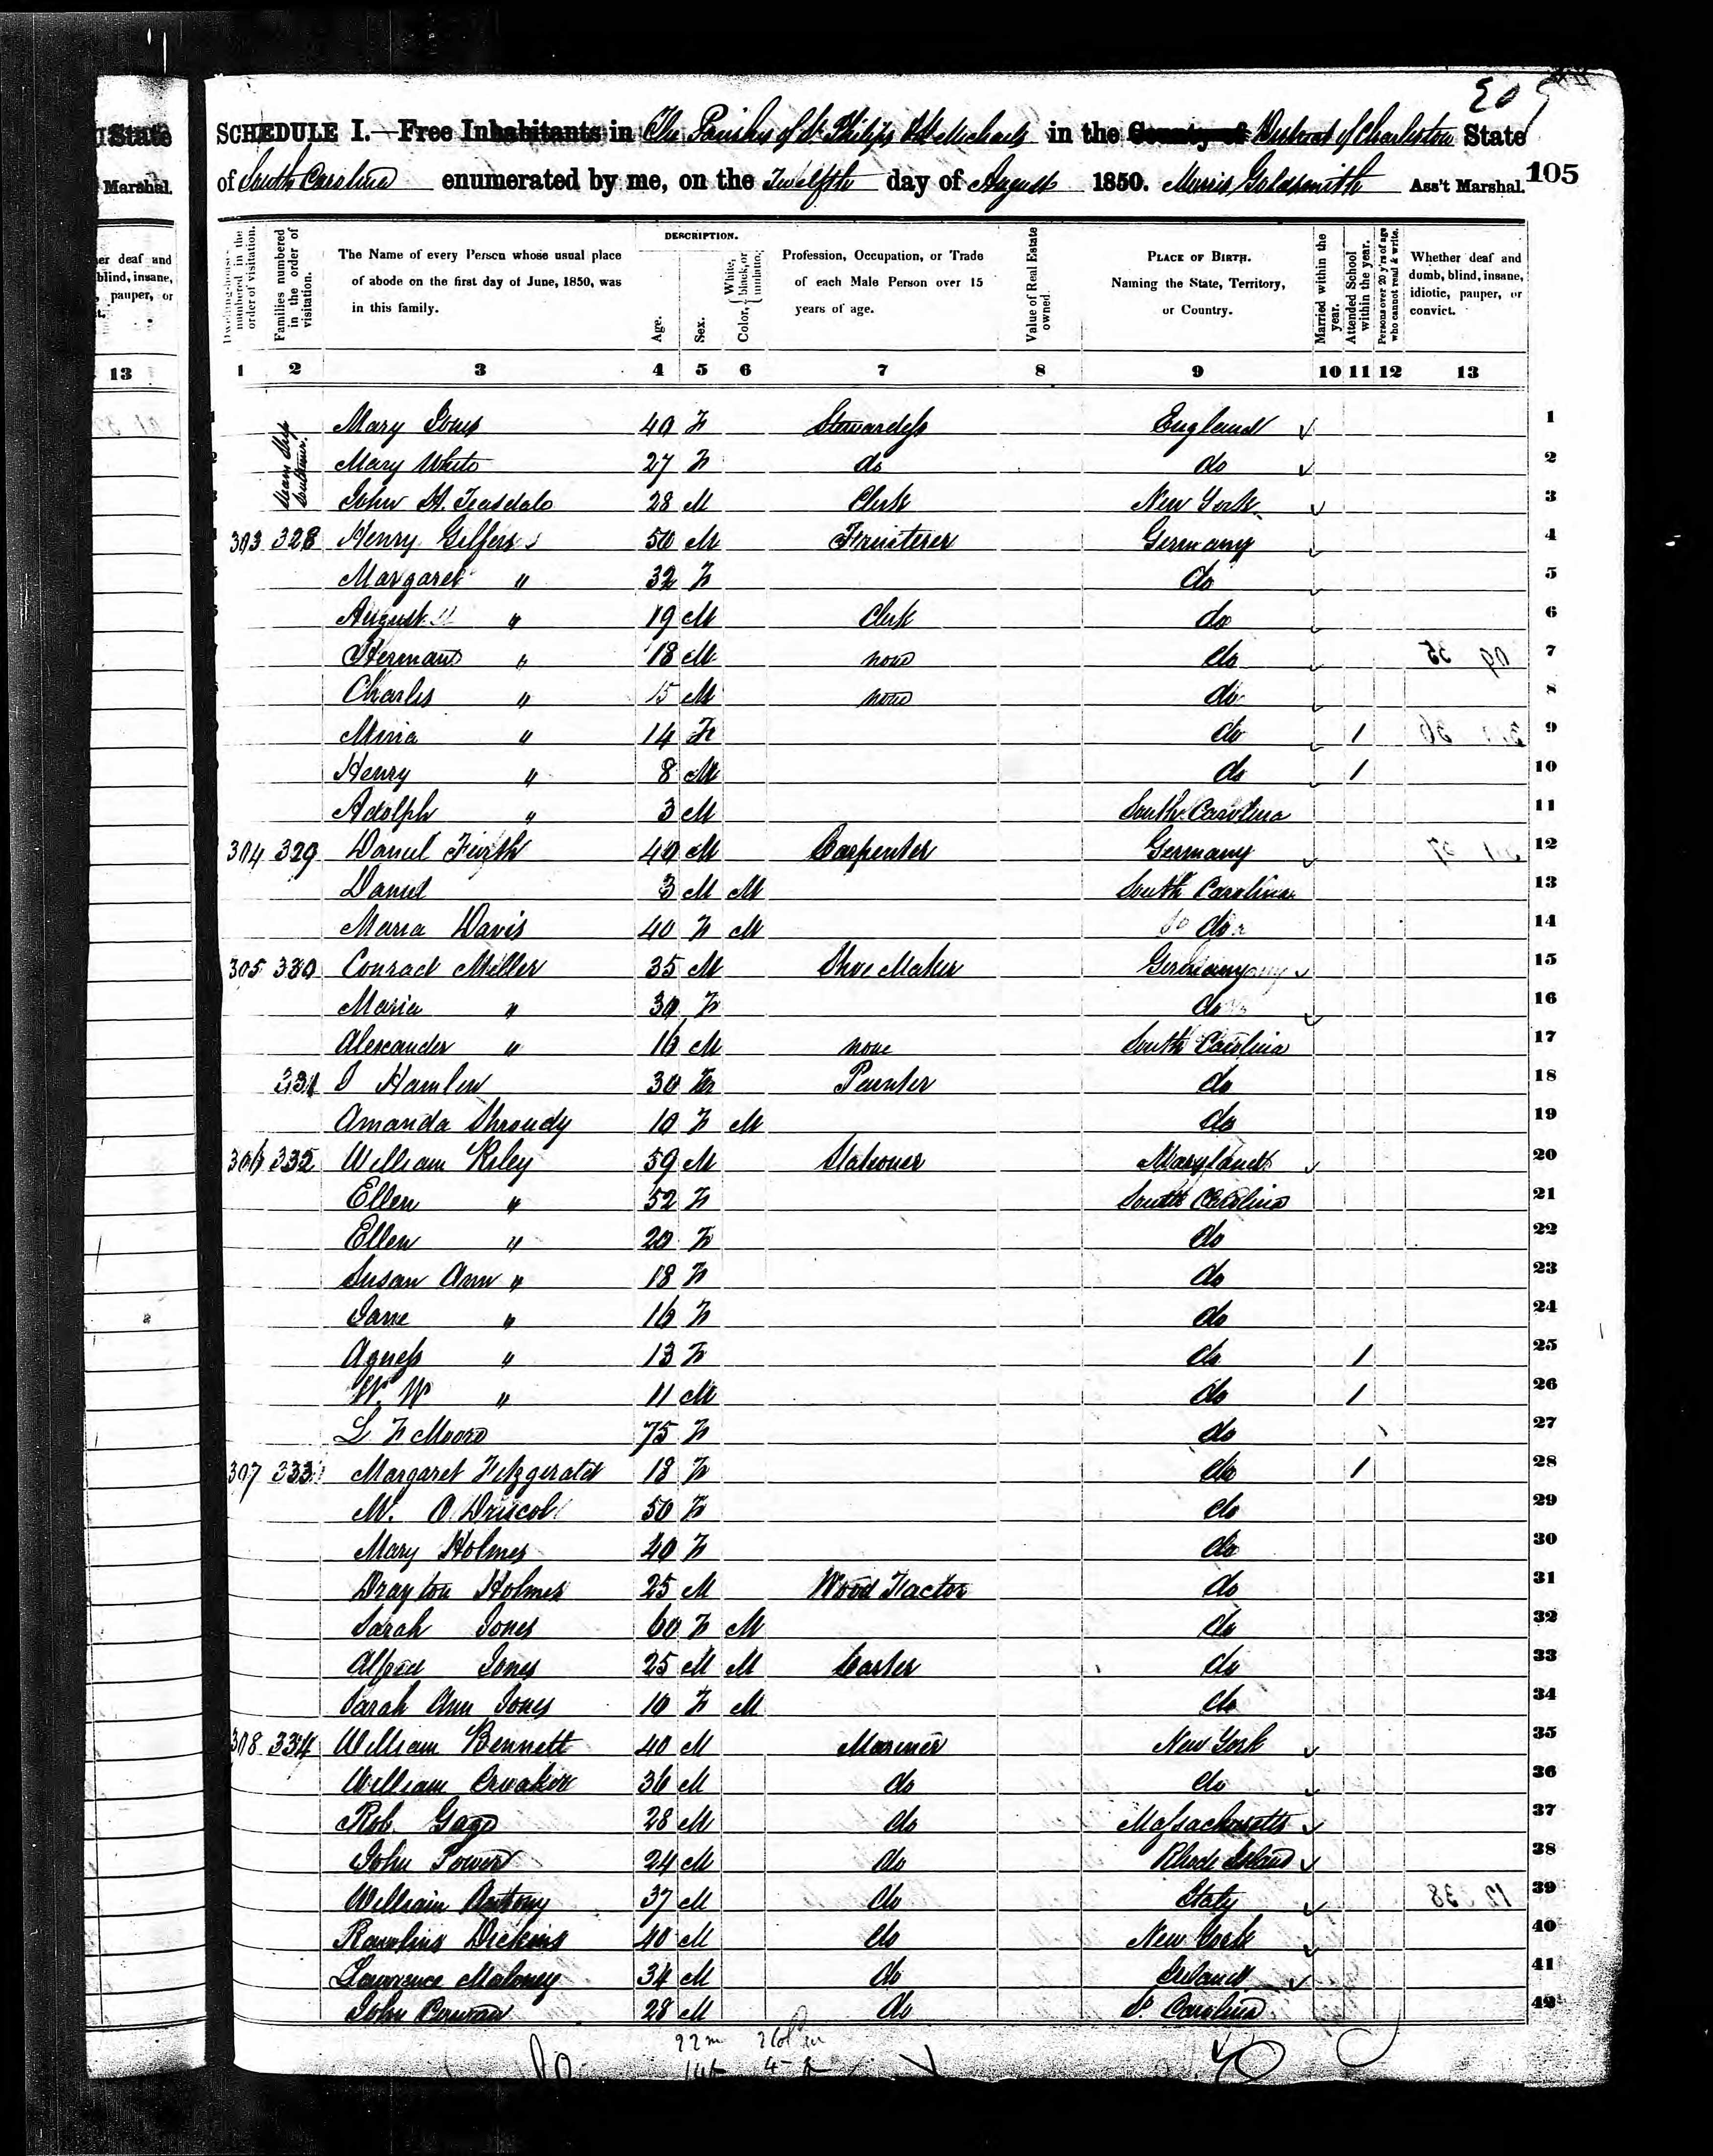 State
Marshal.
er deaf and
blind, insane,
, pauper, or
t.
13
SCHEDULE I.—Free Inhabitants in The Parishes of St Philips & St Michaels in the County of District of Charleston State
of South Carolina enumerated by me, on the Twelfth day of August 1850. Morris Goldsmith Ass't Marshal. 105
Dwelling-houses numbered in the order of visitation.
Families numbered in the order of visitation.
The Name of every Person whose usual place of abode on the first day of June, 1850, was in this family.
DESCRIPTION.
Age.
Sex.
Color, { White, black, or mulatto.
Profession, Occupation, or Trade of each Male Person over 15 years of age.
Value of Real Estate owned.
PLACE OF BIRTH. Naming the State, Territory, or Country.
Married within the year.
Attended School within the year.
Persons over 20 y'rs of age who cannot read & write.
Whether deaf and dumb, blind, insane, idiotic, pauper, or convict.
1 2 3 4 5 6 7 8 9 10 11 12 13
Mary 40 F Stewardess England 1
Mary White 27 F do do 2
John H. Teasdale 28 M Clerk New York 3
303 328 Henry Gelfers 50 M Fruiterer Germany 4
Margaret " 32 F do 5
August " 19 M Clerk do 6
Herman " 18 M none do 7
Charles " 15 M none do 8
Mina " 14 F do 1 9
Henry " 8 M do 1 10
Adolph " 3 M South Carolina 11
304 329 Daniel Furth 40 M Carpenter Germany 12
Daniel 3 M M South Carolina 13
Maria Davis 40 F M do 14
305 330 Conrad Miller 35 M Shoe Maker Germany 15
Maria " 30 F do 16
Alexander " 16 M none South Carolina 17
331 J Hamlen 30 Painter do 18
Amanda Shroudy 10 F M do 19
306 332 William Riley 59 M Stationer Maryland 20
Ellen " 52 F South Carolina 21
Ellen " 20 F do 22
Susan Ann " 18 F do 23
Jane " 16 F do 24
Agness " 13 F do 1 25
W. W " 11 M do 1 26
L F Moore 75 F do 27
307 333 Margaret Fitzgerald 18 F do 1 28
M. O Driscol 50 F do 29
Mary Holmes 40 F do 30
Drayton Holmes 25 M Wood Factor do 31
Sarah Jones 60 F M do 32
Alfred Jones 25 M M Carter do 33
Sarah Ann Jones 10 F M do 34
308 334 William Bennett 40 M Mariner New York 35
William Croaker 36 M do do 36
Rob. Gage 28 M do Massachusetts 37
John Power 24 M do Rhode Island 38
William Antony 37 M do Italy 39
Rawlins Dickins 40 M do New York 40
Lawrence Maloney 34 M do Ireland 41
John Cowan 28 M do S. Carolina 42